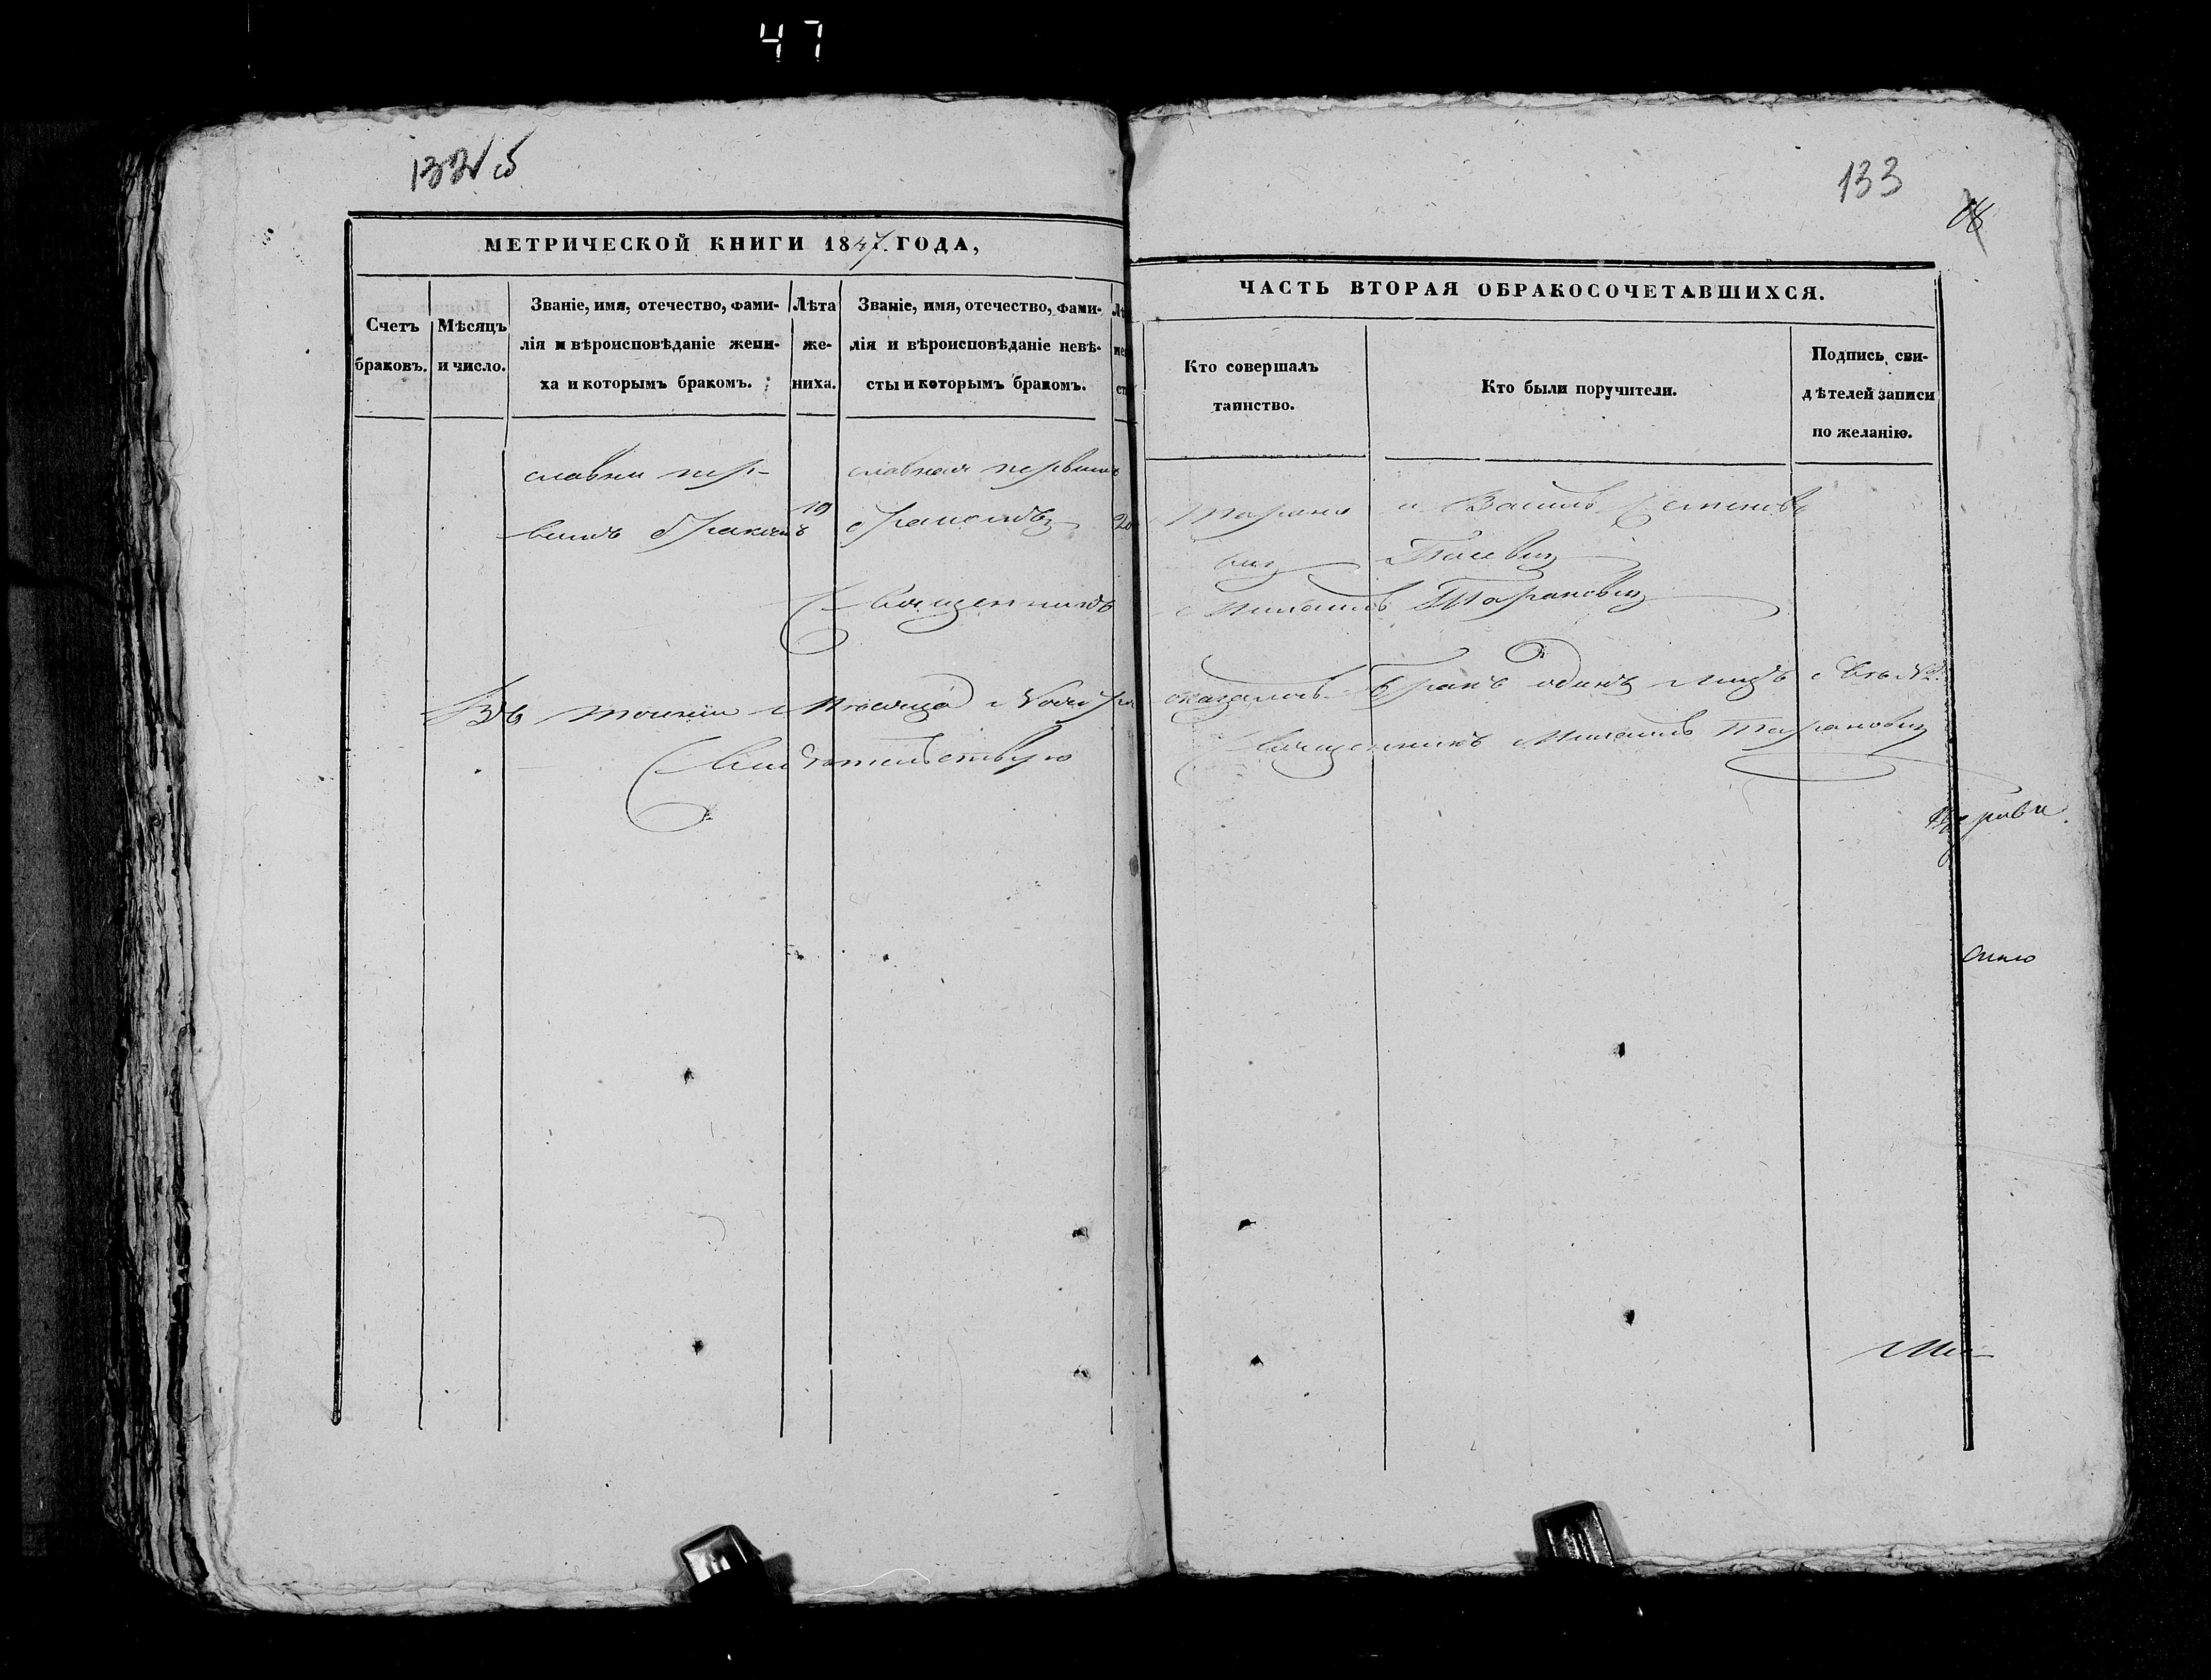 47
133
МЕТРИЧЕСКОЙ КНИГИ 1847. ГОДА,
ЧАСТЬ ВТОРАЯ ОБРАКОСОЧЕТАВШИХСЯ.
Счетъ браковъ.
Мѣсяцъ и число.
Званіе, имя, отечество, фами-
лія и вѣроисповѣданіе жени-
ха и которымъ бракомъ.
Лѣта
же-
ниха.
Званіе, имя, отечество, фами-
лія и вѣроисповѣданіе невѣ-
сты и которымъ бракомъ.
Кто совершалъ
таинство.
Кто были поручители.
Подпись сви-
дѣтелей записи
по желанію.
славни пер-
вымъ бракомъ
19
славная первымъ
бракомъ
20
Тарано
вичъ
и Василь Семеновъ
Священникъ Михаилъ Тарановичъ
Въ точніи Мѣсяца оказалось Бракъ одинъ
Свидѣтельствую Священникъ Михаилъ Тарановичъ